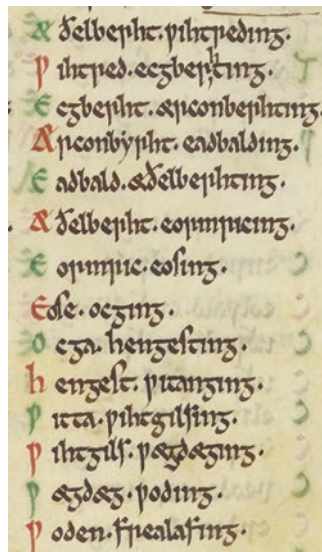 Æðelberht. ƿihtreding.
Ƿihtred. ecgberhting.
Ecgberht. ærconberhting.
Ærconbyrht. eadbalding.
Eadbald. æðelberhting.
Æðelberht. eormricing.
Eormric. eosing.
Eose. ocging.
Ocga. hengesting.
hengest. ƿitanging.
Ƿitta. ƿihtgilsing.
Ƿihtgils. ƿægdæging.
Ƿægdæg. ƿoding.
Ƿoden. frealafing.